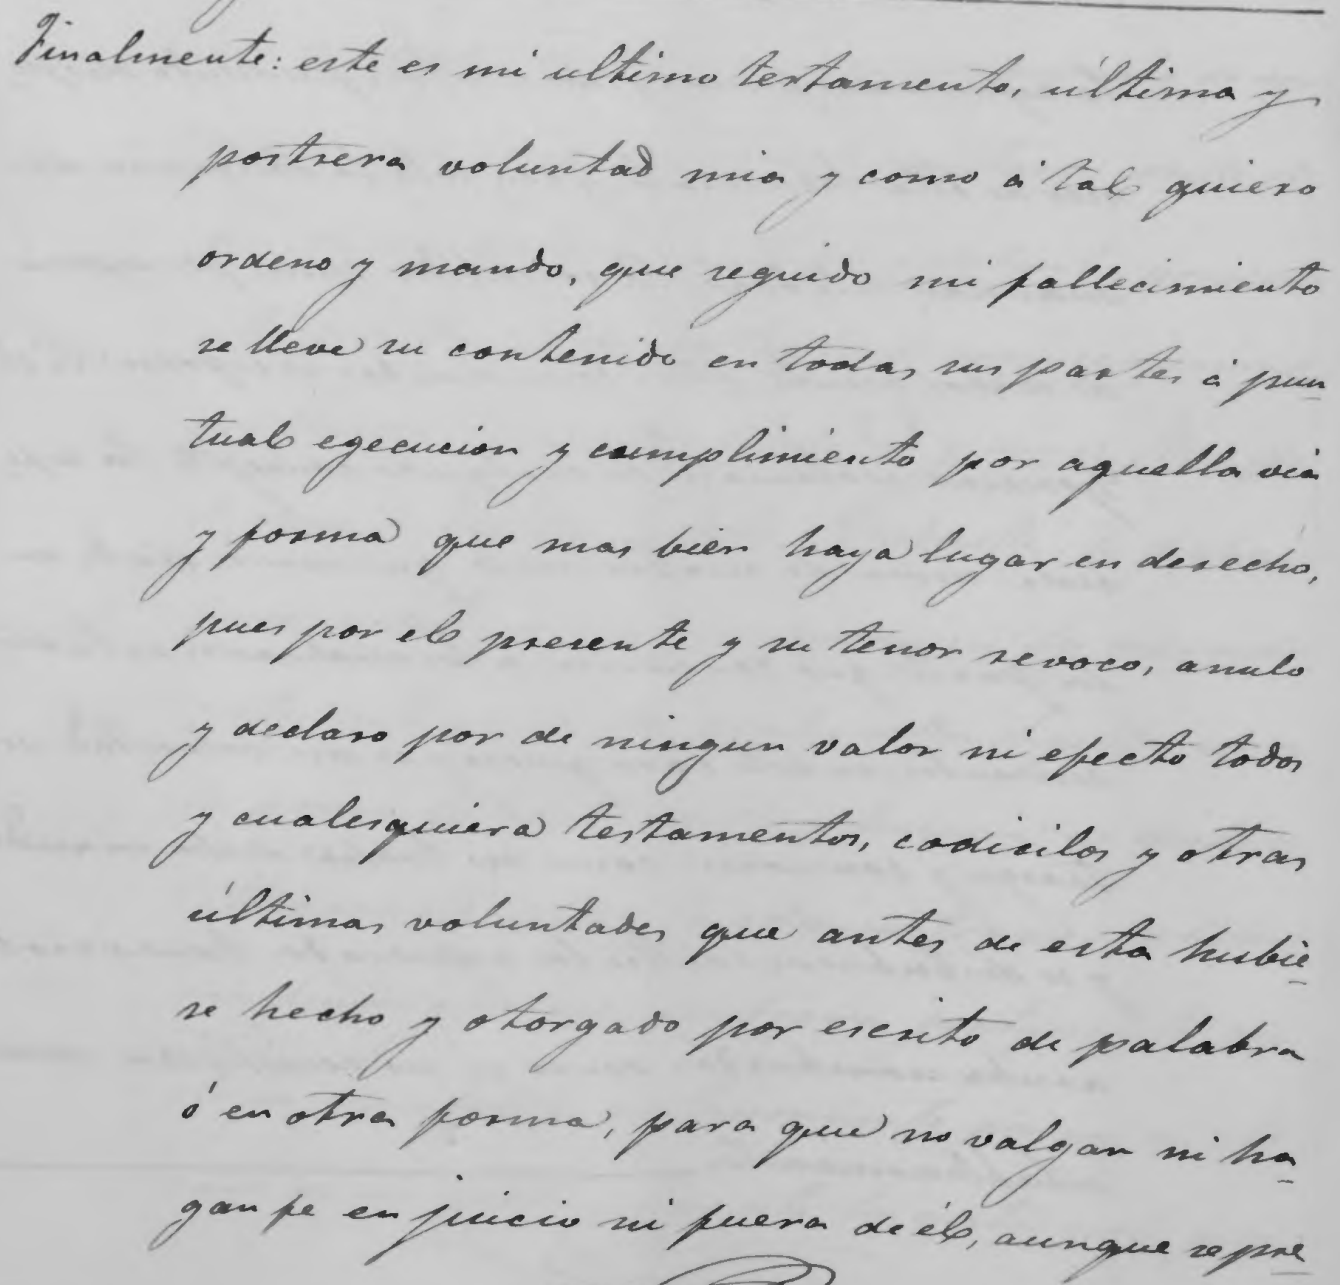 Finalmente: este es mi ultimo testamento, última y
postrera voluntad mia y como á tal quiero
ordeno y mando, que seguido mi fallecimiento
se lleve su contenido en todas sus partes á pun-
tual egecucion y cumplimiento por aquella via
y forma que mas bien haya lugar en derecho,
pues por el presente y su tenor revoco, anulo
y declaro por de ningun valor ni efecto todos
y cualesquiera testamentos, codicilos y otras
últimas voluntades que antes de esta hubie-
se hecho y otorgado por escrito de palabra
ó en otra forma, para que no valgan ni ha-
gan fe en juicio ni fuera de él, aunque se pre-